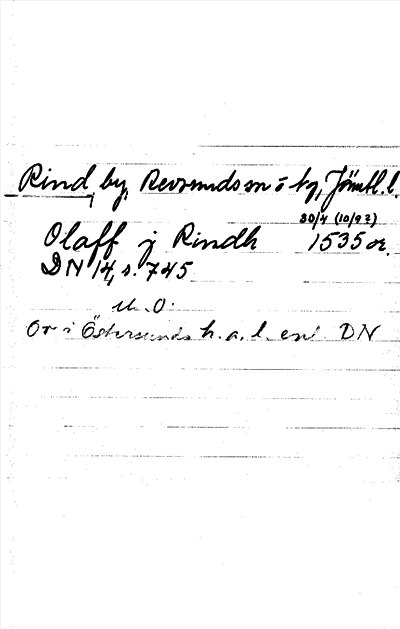 Rind, by, Revsunds sn o kg, Jämtl. l.
30/4 (10/9?)
Olaff j Rindh 1535 or.
DN 14, s. 745
U. O.
Or i Östersunds h. a. l. enl DN